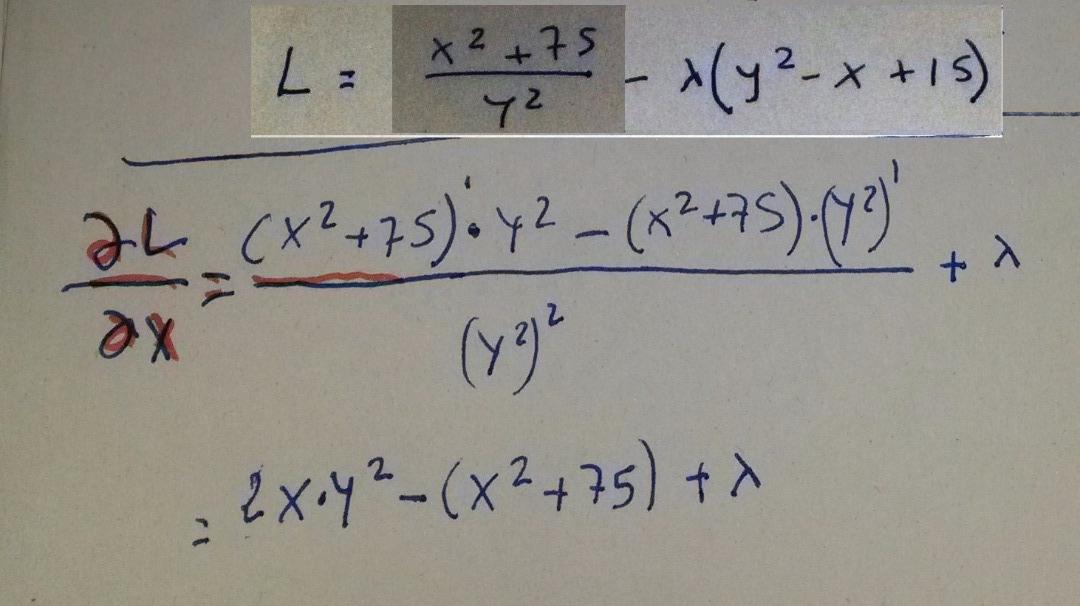 L = (x² + 75)/y² - λ(y² - x + 15)
∂L/∂x = ((x² + 75)' · y² - (x² + 75) · (y²)')/(y²)² + λ
= 2x · y² - (x² + 75) + λ